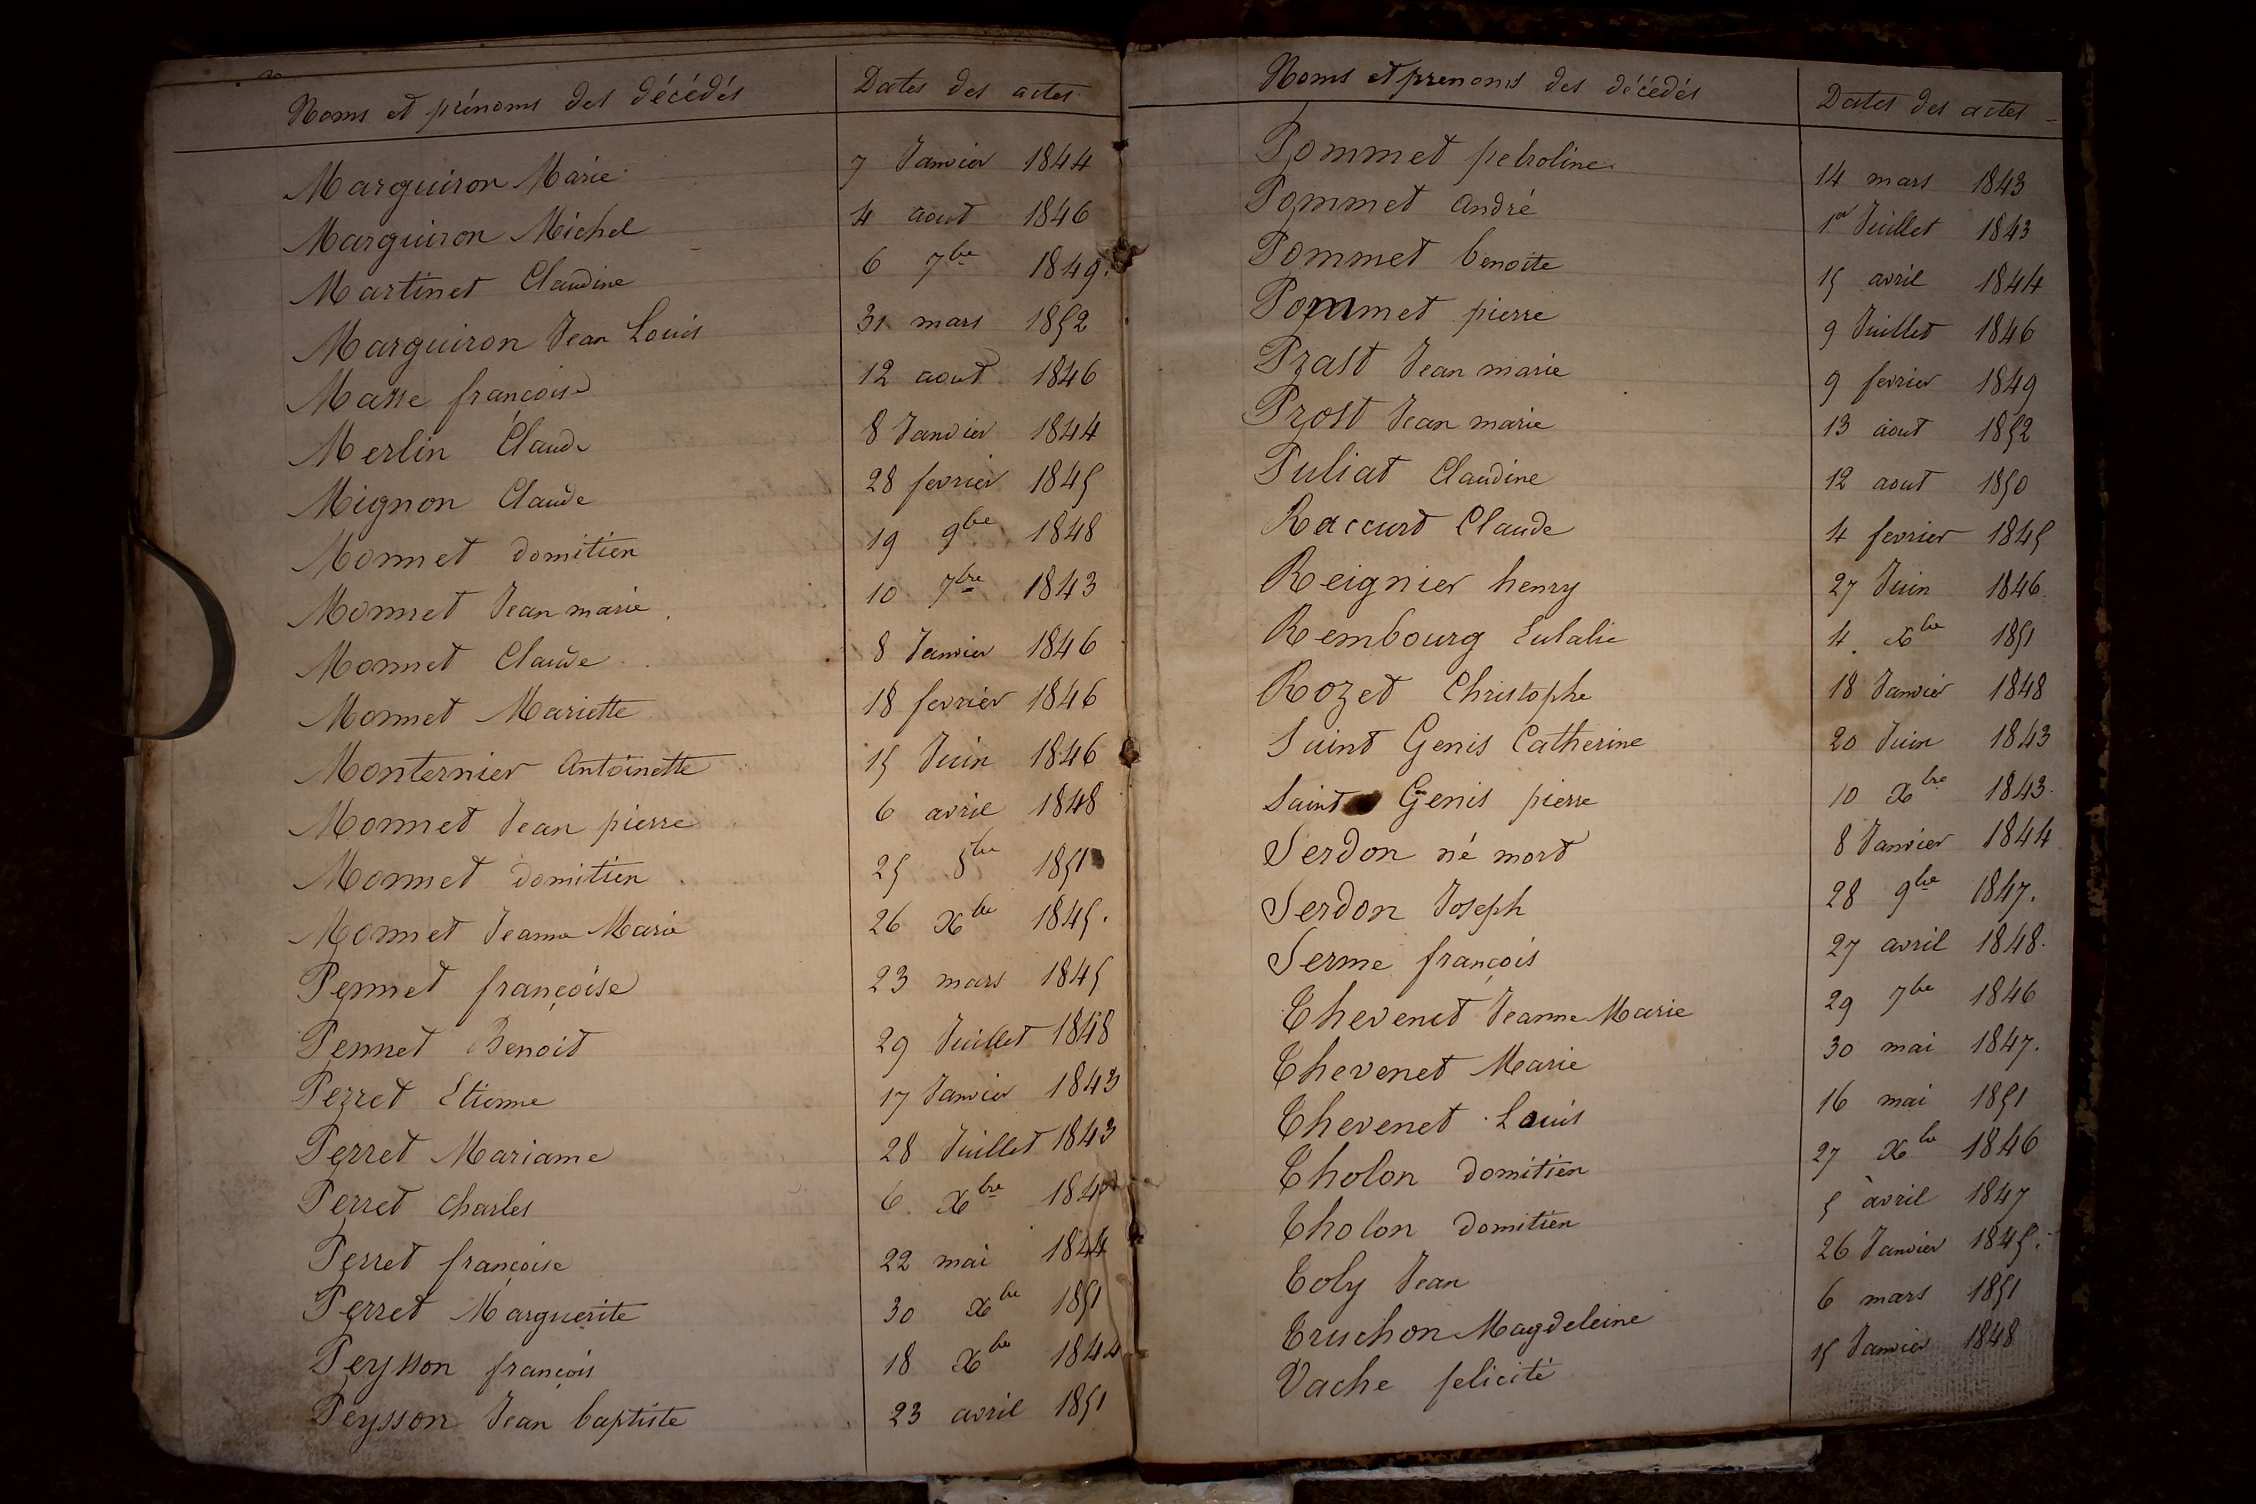 Noms et prénoms des décédés Dates des actes
Marguiron Marie 7 Janvier 1844
Marguiron Michel 4 aout 1846
Martinet Claudine 6 7bre 1849.
Marguiron Jean Louis 31 mars 1852
Masse françoise 12 aout 1846
Merlin Claude 8 Janvier 1844
Mignon Claude 28 fevrier 1845
Monnet domitien 19 9bre 1848
Monnet Jean marie 10 7bre 1843
Monnet Claude 8 Janvier 1846
Monnet Mariette 18 fevrier 1846
Monternier Antoinette 15 Juin 1846
Monnet Jean pierre 6 avril 1848
Monnet domitien 25 8bre 1851
Monnet Jeanne Marie 26 Xbre 1845.
Pennet françoise 23 mars 1845
Pennet Benoit 29 Juillet 1848
Perret Etienne 17 Janvier 1843
Perret Marianne 28 Juillet 1843
Perret charles 6 Xbre
Perret françoise 22 mai 1844
Perret Marguerite 30 Xbre 1851
Peysson françois 18 Xbre 1844
Peysson Jean baptiste 23 avril 1851
Noms et prenoms des décédés Dates des actes
Pommet petroline 14 mars 1843
Pommet andré 1er Juillet 1843
Pommet benoite 15 avril 1844
Pommet pierre 9 Juillet 1846
Prast Jean marie 9 fevrier 1849
Prost Jean marie 13 aout 1852
Puliat Claudine 12 aout 1850
Raccurt Claude 4 fevrier 1845
Reignier henry 27 Juin 1846
Rembourg Eulalie 4 Xbre 1851
Rozet Christophe 18 Janvier 1848
Saint Genis Catherine 20 Juin 1843
Saint Genis pierre 10 Xbre 1843
Serdon né mort 8 Janvier 1844
Serdon Joseph 28 9bre 1847.
Serme françois 27 avril 1848.
Thevenet Jeanne Marie 29 7bre 1846
Thevenet Marie 30 mai 1847.
Thevenet Louis 16 mai 1851
Tholon domitien 27 Xbre 1846
Tholon domitien 5 avril 1847
Toly Jean 26 Janvier 1845.
Truchon Magdeleine 6 mars 1851
Vache felicité 15 Janvier 1848